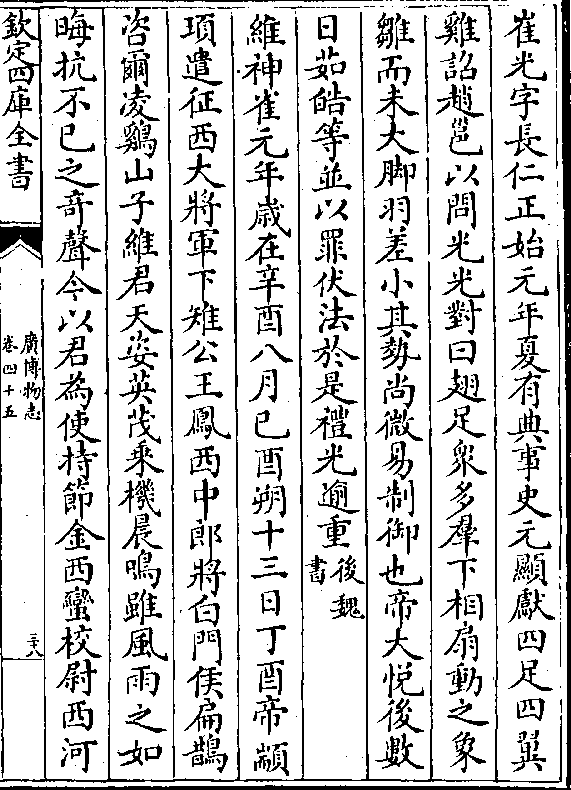 崔光字長仁正始元年夏有典事史元顯獻四足四翼
雞詔趙邕以問光光對曰翅足衆多羣下相扇動之象
雛而未大脚羽差小其勢尚微易制御也帝大悅後數
日茹皓等並以罪伏法於是禮光逾重後魏書
維神雀元年歲在辛酉八月己酉朔十三日丁酉帝顓
項遣征西大將軍下雉公王鳳西中郎將白門侯扁鵲
咨爾凌鷄山子維君天姿英茂乘機晨鳴雖風雨之如
晦抗不已之奇聲今以君為使持節金西蠻校尉西河
欽定四庫全書
廣博物志
卷四十五
三十八